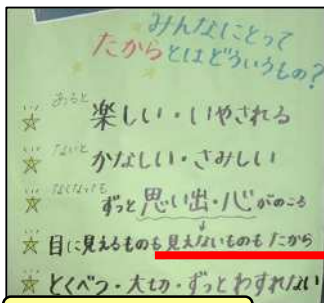 みんなにとって
たからとはどういうもの?
あると
楽しい・いやされる
ないと
かなしい・さみしい
なくなっても
ずっと思い出・心がのこる
目に見えるものも見えないものもたから
とくべつ・大切・ずっとわすれない